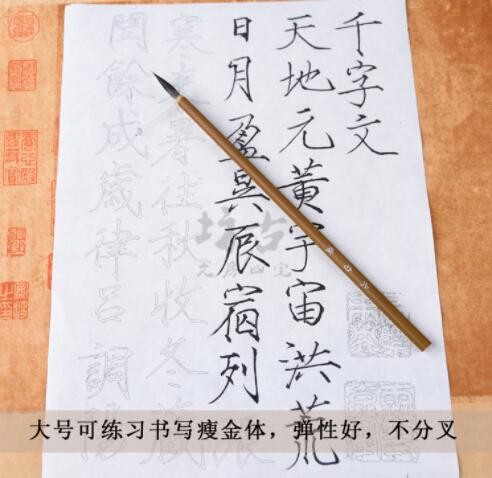 千字文
天地元黄宇宙洪荒
日月盈昃辰宿列
寒來暑往秋收冬藏
閏餘成歲律呂調
大号可练习书写瘦金体，弹性好，不分叉